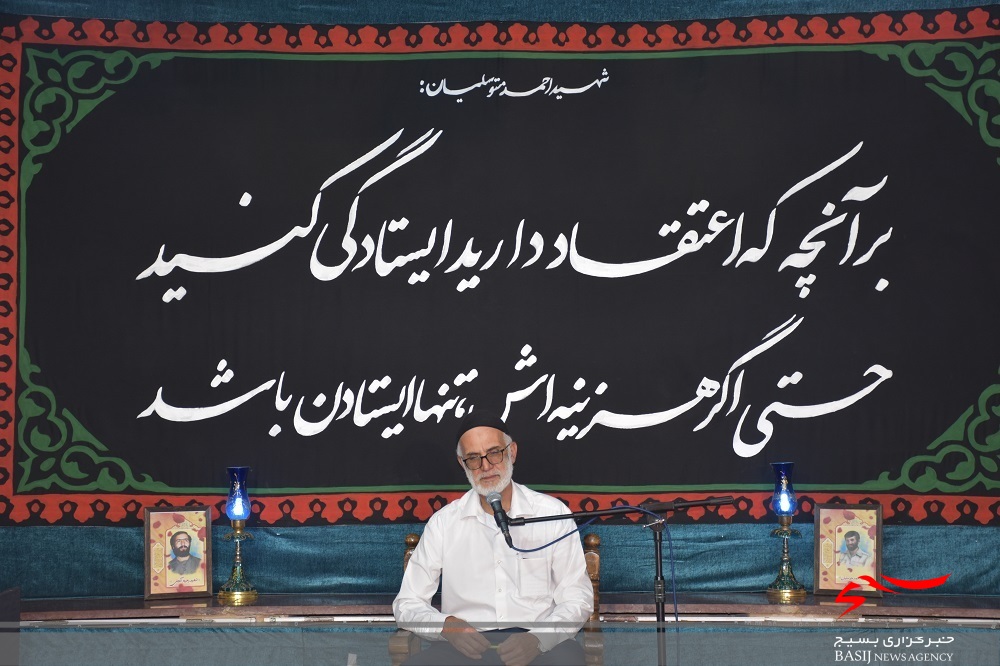 شهید احمد متوسلیان:
بر آنچه که اعتقاد دارید ایستادگی کنید
حتی اگر هزینه اش، تنها ایستادن باشد
خبرگزاری بسیج
BASIJ NEWS AGENCY